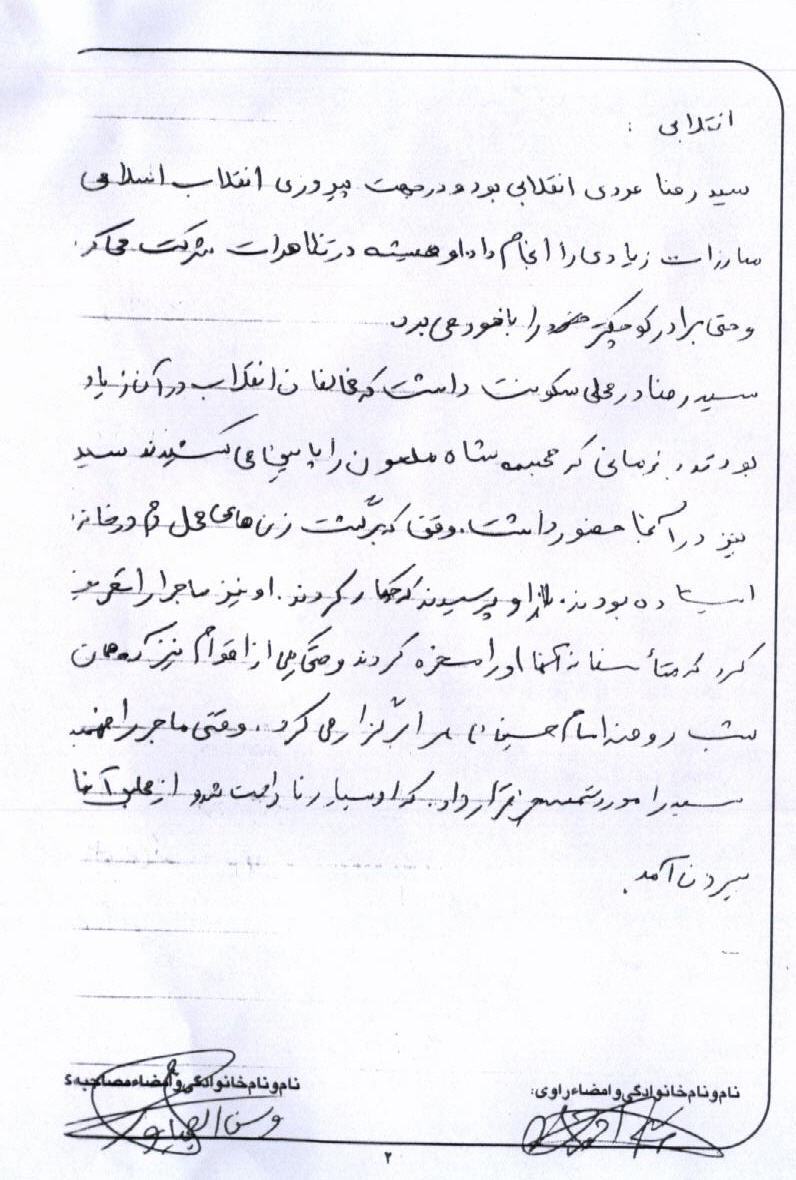 انقلابی :
سید رضا مردی انقلابی بود و در جهت پیروزی انقلاب اسلامی
مبارزات زیادی را انجام داد او همیشه در تظاهرات شرکت می کرد
و حتی برادر کوچکتر خود را با خود می برد.
سید رضا در محلی سکونت داشت که مخالفان انقلاب در آن زیاد
بودند. زمانی که مجسمه شاه ملعون را پایین می کشیدند سید
نیز در آنجا حضور داشت. وقتی که برگشت زن های محل دم در خانه
ایستاده بودند. از او پرسیدند که چکار کردند. او نیز ماجرا را تعریف
کرد که متأسفانه آنها او را مسخره کردند و حتی یکی از اقوام نیز که همان
شب روضه امام حسین (ع) را برگزار می کرد. وقتی ماجرا را فهمید
سید را مورد تمسخر قرار داد. که او بسیار ناراحت شد و از مجلس آنها
بیرون آمد.
نام و نام خانوادگی و امضاء راوی:
نام و نام خانوادگی و امضاء مصاحبه ک
۲